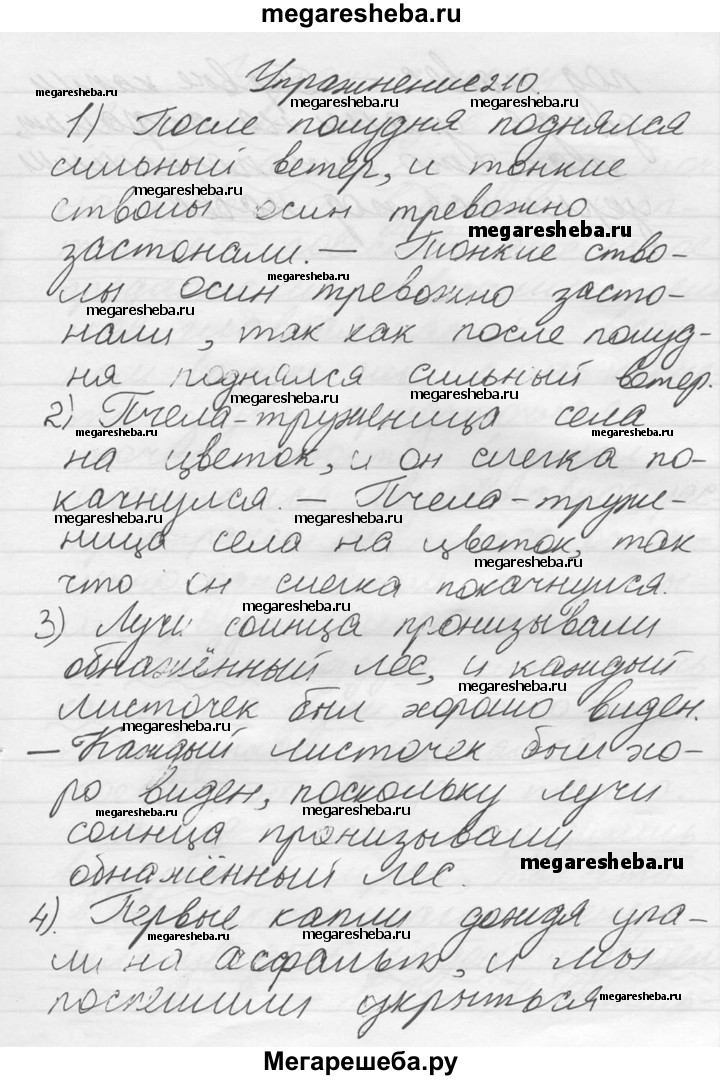 megaresheba.ru
Упражнение 210.
megaresheba.ru
megaresheba.ru
1) После полудня поднялся
megaresheba.ru
сильный ветер, и тонкие
megaresheba.ru
стволы осин тревожно
megaresheba.ru
застонали. – Тонкие ство-
megaresheba.ru
лы осин тревожно засто-
megaresheba.ru
нали, так как после полуд-
ня поднялся сильный ветер.
megaresheba.ru
2) Пчела-труженица села
megaresheba.ru
megaresheba.ru
на цветок, и он слегка по-
качнулся. – Пчела-труже-
megaresheba.ru
megaresheba.ru
ница села на цветок, так
megaresheba.ru
что он слегка покачнулся.
megaresheba.ru
3) Лучи солнца пронизывали
обнажённый лес, и каждый
megaresheba.ru
листочек был хорошо виден.
megaresheba.ru
– Каждый листочек был хо-
ро виден, поскольку лучи
megaresheba.ru
megaresheba.ru
солнца пронизывали
обнажённый лес.
megaresheba.ru
4). Первые капли дождя упа-
megaresheba.ru
megaresheba.ru
ли на асфальт, и мы
поспешили укрыться
megaresheba.ru
Мегарешеба.ру